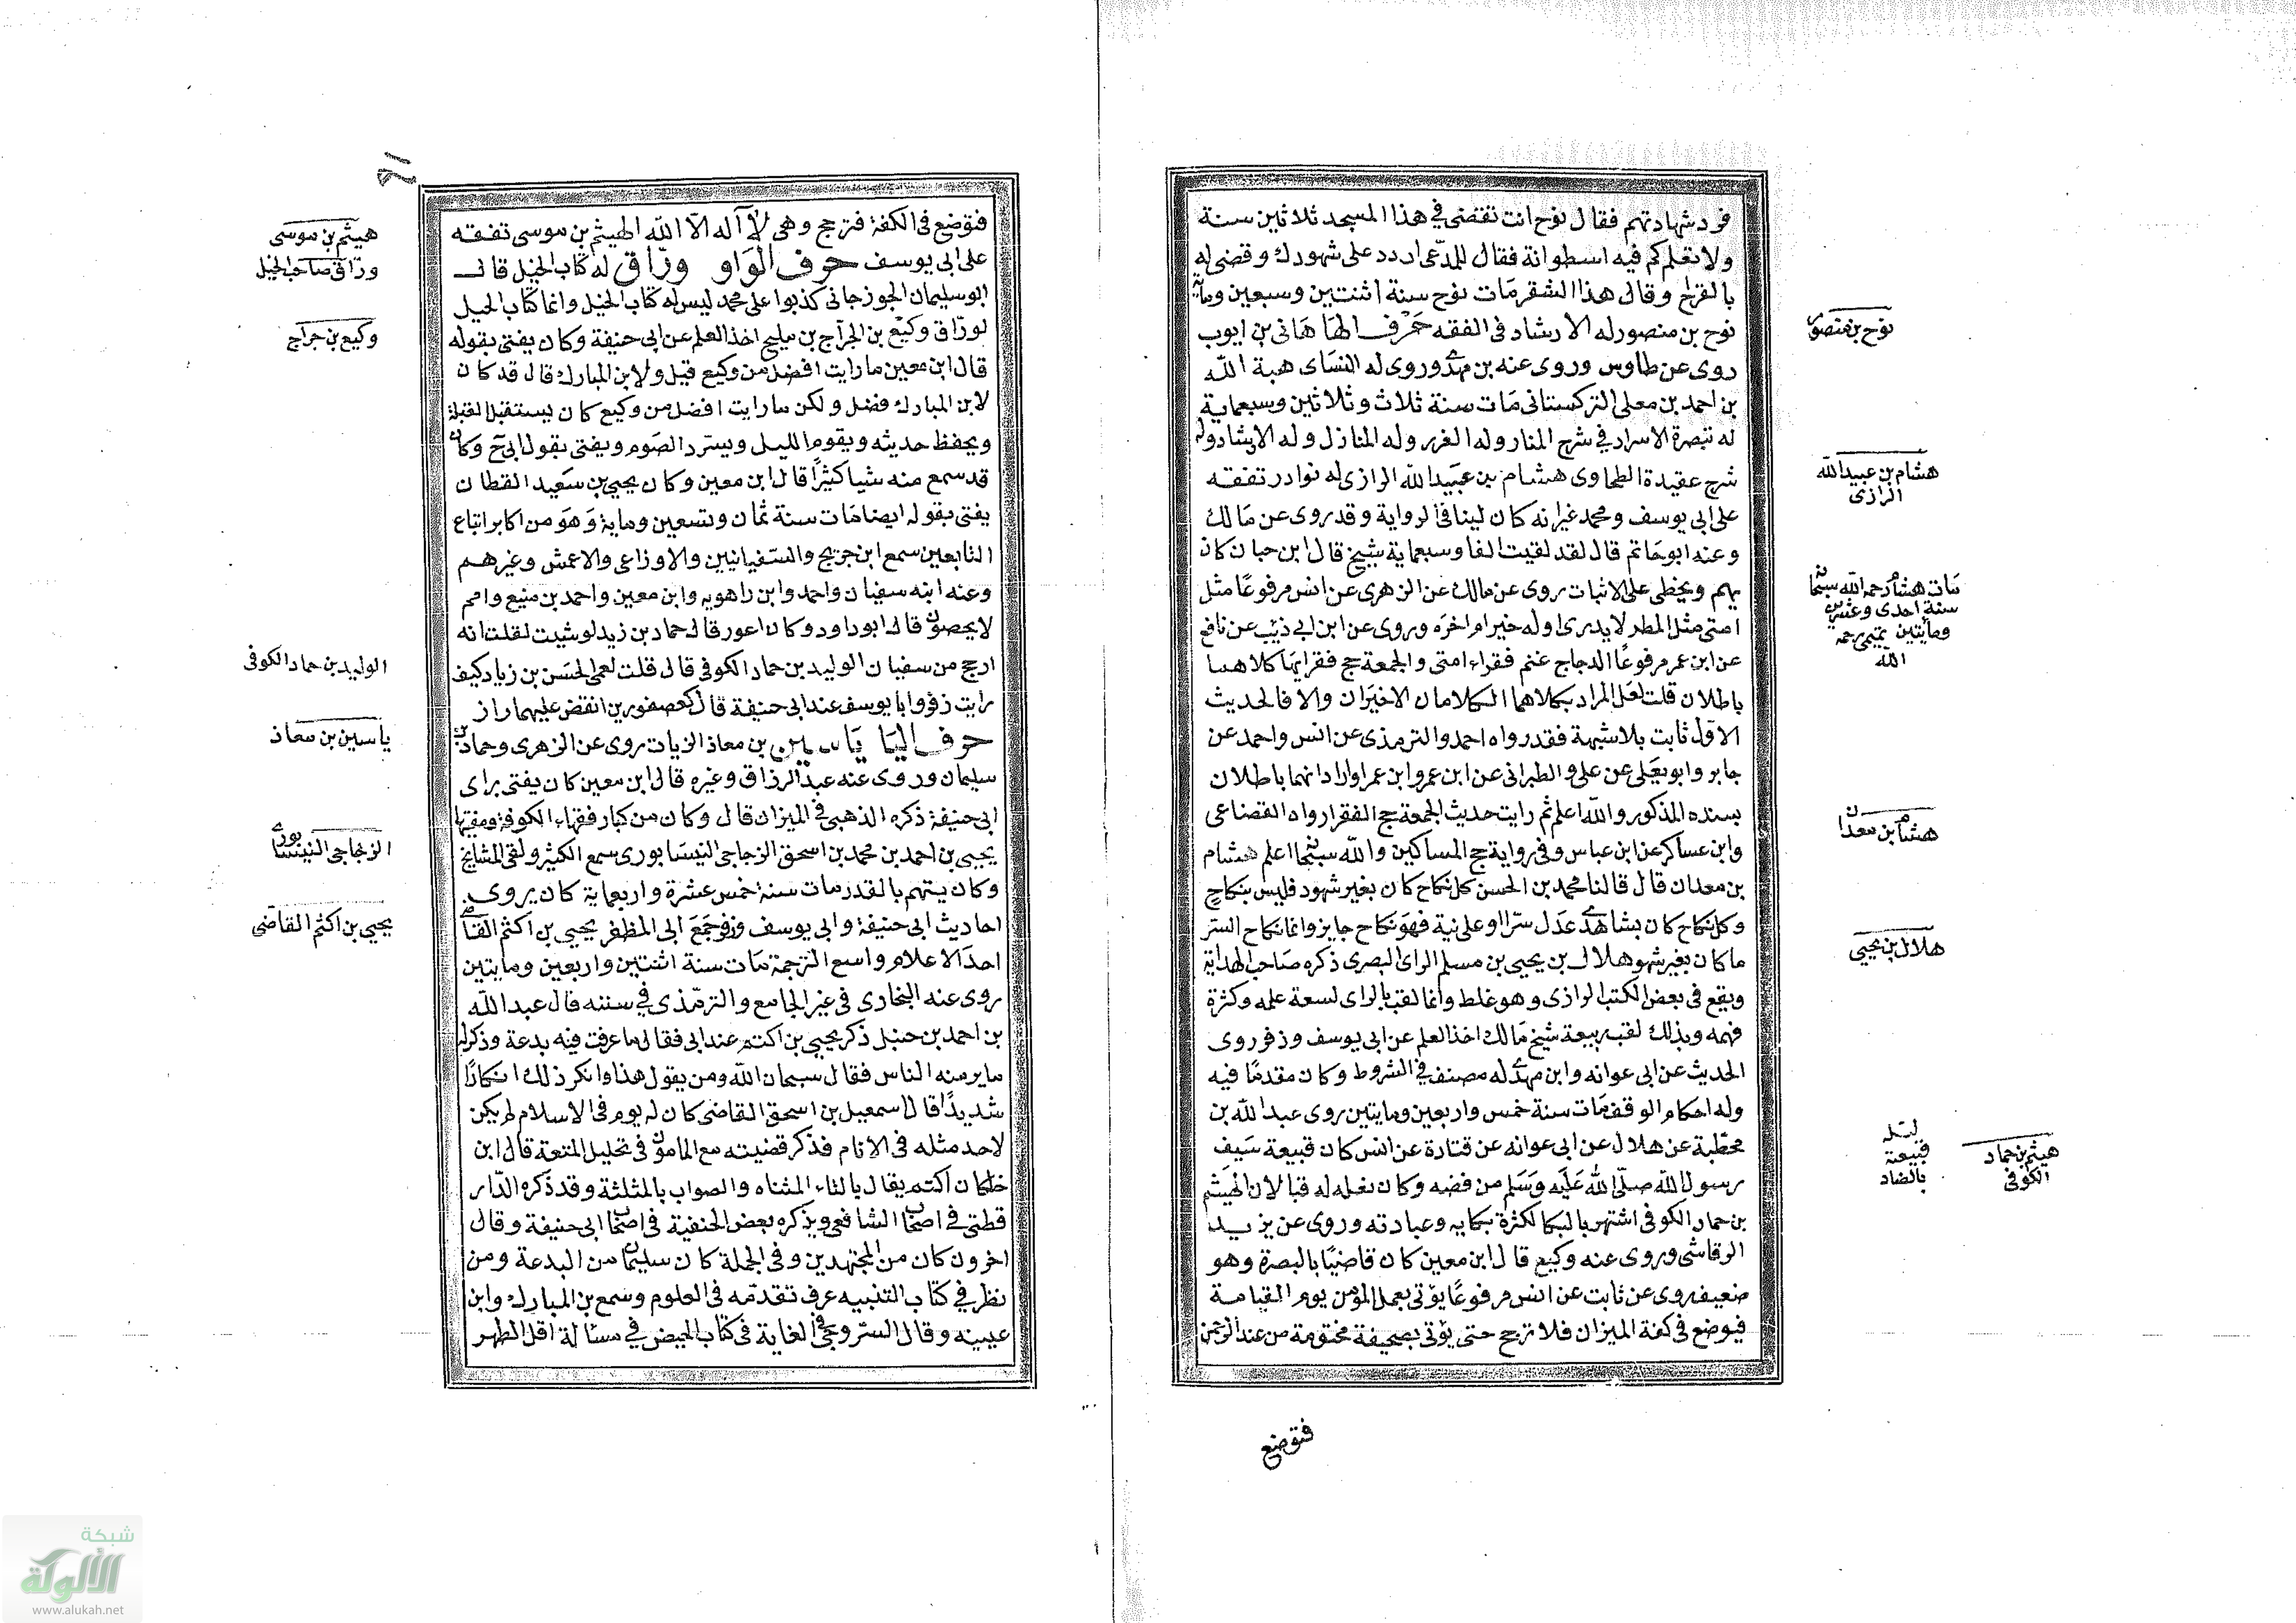 فرد شهادتهم فقال نوح انت تقضى في هذا المسجد ثلاثين سنة
ولا تعلم كم فيه اسطوانة فقال للمدّعى اردد على شهودك وقضى له
بالقراح وقال هذا الشقر مَات نوح سنة اثنتين وسبعين وماية
نوح بن منصور له الارشاد في الفقه حَرف الهَا هَانى بن ايوب
روى عن طاوس وروى عنه بن مهدى وروى له النساى هبة الله
بن احمد بن معلى التركستانى مَات سنة ثلاث وثلاثين وسبعماية
له تبصرة الاسرار في شرح المنار وله الغرر وله المنازل وله الارشاد وله
شرح عقيدة الطحاوى هشام بن عبَيد الله الرازى له نوادر تفقه
على ابى يوسف ومحمد غير انه كان لينا في الرواية وقد روى عن مَالك
وعنه ابو حَاتم قال لقد لقيت الفا وسبعماية شيخ قال ابن حبان كان
يهم ويخطى على الاثبات روى عن مالك عن الزهرى عن انس مرفوعًا مثل
امتى مثل المطر لا يدرى اوله خير ام اخرَه وروى عن ابن ابى ذئب عن نافع
عن ابن عمر مرفوعًا الدجاج غنم فقراء امتى والجمعة حج فقرايها كلاهما
باطلان قلت لعَل المراد بكلاهما الكلامان الاخيرَان والا فالحديث
الاوّل ثابت بلا شبهة فقد رواه احمد والترمذى عن انس واحمد عن
جابر وابو يعَلى عن على والطبرانى عن ابن عمرو ابن عمر او اراد انهما باطلان
بسنده المذكور والله اعلم ثم رايت حديث الجمعة حج الفقرا رواه القضاعى
وابن عساكر عن ابن عباس وفي رواية حج المساكين والله سبحانه اعلم هشام
بن معدان قال قال لنا محمد بن الحسن كل نكاح كان بغير شهود فليس بنكاحٍ
وكل نكاح كان بشاهدى عَدل سرّا او علانية فهوَ نكاح جايز وانما نكاح السّر
ما كان بغير شهو هلال بن يحيى بن مسلم الراى البصرى ذكره صَاحب الهداية
ويقع في بعض الكتب الرازى وهو غلط وانما لقب بالراى لسعة علمه وكثرة
فهمه وبذلك لقب ربيعة شيخ مَالك اخذ العلم عن ابى يوسف وزفر روى
الحديث عن ابى عوانه وابن مهدى له مصنف في الشروط وكان مقدمًا فيه
وله احكام الوقف مَات سنة خمس واربعين ومايتين روى عبد الله بن
محطبة عن هلال عن ابى عوانه عن قتادة عن انس كان قبيعة سَيف
رسول الله صلّى الله عَليَه وَسَلم من فضه وكان نعله له قبالان الهَيثم
بن حماد الكوفى اشتهر بالبكا لكثرة بكايه وعبادته وروى عن يزيد
الرقاشى وروى عنه وكيع قال ابن معين كان قاضيًا بالبصرة وهو
ضعيف روى عن ثابت عن انس مرفوعًا يؤتى بعمل المؤمن يوم القيامة
فيوضع في كفة الميزان فلا ترجح حتى يؤتى بصحيفة مختومة من عند الرحمن
فتوضع
نوح بن منصور
هشام بن عبيد الله
الرازى
مَات هشام رحمه الله
سنة احدى وعشرين
ومايتين
الله
هشام بن معدان
هلال بن يحيى
هيثم بن حماد
الكوفى
قبيعة
بالضاد
فتوضع في الكفة فترجح وهى لا آله الا الله الهيثم بن موسى تفقه
على ابى يوسف حرف الوَاو ورّاق له كتاب الحيل قال
ابو سليمان الجوزجانى كذبوا على محمد ليس له كتاب الحيل وانما كتاب الحيل
لورّاق وكيع بن الجرّاح بن مليح اخذ العلم عن ابى حنيفة وكان يفتى بقوله
قال ابن معين ما رايت افضل من وكيع قيل ولا ابن المبارك قال قد كان
لابن المبارك فضل ولكن ما رايت افضل من وكيع كان يستقبل القبلة
ويحفظ حديثه ويقوم الليل ويسرد الصَوم ويفتى بقول ابى ح وكان
قد سمع منه شيا كثيرًا قال ابن معين وكان يحيى بن سَعيد القطان
يفتى بقوله ايضا مَات سنة ثمان وتسعين وماية وَهوَ من اكابر اتباع
التابعين سمع ابن جريج والسّفيانيين والاوزاعى والاعمش وغيرهم
وعنه ابنه سفيان واحمد وابن راهويه وابن معين واحمد بن منيع وامم
لا يحصون قال ابو داود وكان اعور قال حماد بن زيد لو شيت لقلت انه
ارجح من سفيان الوليد بن حماد الكوفى قال قلت لعمى الحسَن بن زياد كيف
رايت زفر وابا يوسف عند ابى حنيفة قال كعصفورين انقض عليهما راز
حرف اليَا يَاسين بن معاذ الزيات روى عن الزهرى وحماد بن
سليمان وروى عنه عبد الرزاق وغيره قال ابن معين كان يفتى براى
ابى حنيفة ذكره الذهبى في الميزان قال وكان من كبار فقهاء الكوفة ومفتيها
يحيى بن احمد بن محمد بن اسحق الزجاجى النيسَابورى سمع الكثير ولقى المشايخ
وكان يتهم بالقدر مات سنة خمس عشرة واربعماية كان يروى
احاديث ابى حنيفة وابى يوسف وزفر جَمَعَ ابى المظفر يحيى بن اكثم القاضى
احدَ الاعلام واسع الترجمة مَات سنة اثنتين واربعين ومايتين
روى عنه البخارى في غير الجامع والترمّذى في سننه قال عبد الله
بن احمد بن حنبل ذكر يحيى بن اكتم عند ابى فقال ما عرفت فيه بدعة وذكر له
ما يرميه الناس فقال سبحان الله ومن يقول هذا وانكر ذلك انكارًا
شديدًا قال اسمعيل بن اسحق القاضى كان له يوم في الاسلام لم يكن
لاحد مثله في الانام فذكر قضيته مع المامون في تحليل المتعة قال ابن
خلكان اكتم يقال بالتاء المثناه والصواب بالمثلثة وقد ذكره الدّار
قطنى في اصحاب الشافعى ويذكره بعض الحنفية في اصحاب ابى حنيفة وقال
اخرون كان من المجتهدين وفي الجملة كان سليما من البدعة ومن
نظر في كتاب التنبيه عرف تقدمّه في العلوم وسمع بن المبارك وابن
عيينه وقال السّروجى في الغاية في كتاب الحيض في مسَالة اقل الطهر
هيثم بن موسى
ورّاق صاحب الحيل
وكيع بن جراح
الوليد بن حماد الكوفى
ياسين بن معاذ
الزجاجى النيسابورى
يحيى بن اكثم القاضى
شبكة
الألوكة
www.alukah.net